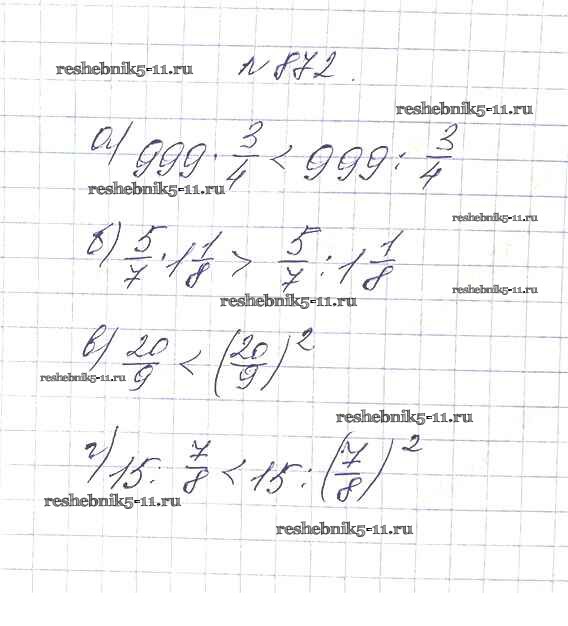 reshebnik5-11.ru
№ 872.
reshebnik5-11.ru
а) 999 · 3/4 < 999 : 3/4
reshebnik5-11.ru
reshebnik5-11.ru
б) 5/7 · 1 1/8 > 5/7 : 1 1/8
reshebnik5-11.ru
reshebnik5-11.ru
в) 20/9 < (20/9)²
reshebnik5-11.ru
reshebnik5-11.ru
г) 15 : 7/8 < 15 : (7/8)²
reshebnik5-11.ru
reshebnik5-11.ru